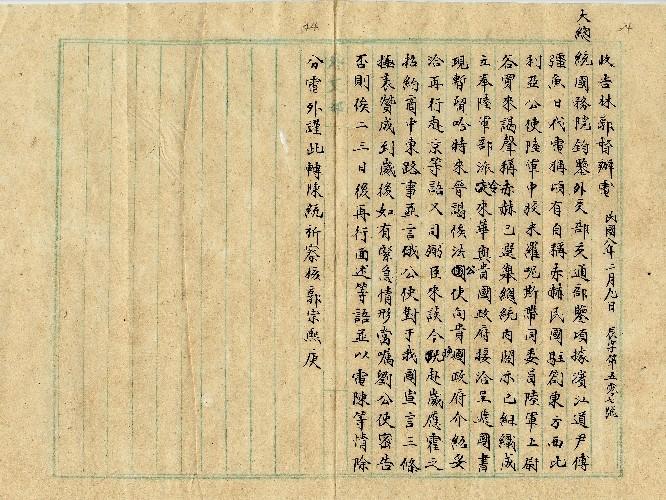 收吉林郭督辦電 民國八年二月九日 辰字第五零七號
大總
統國務院鈞鑒外交部交通部鑒項據濱江道尹傅
彊魚日代電稱頃有自稱赤赫民國駐劄東方西比
利亞公使陸軍中校米羅呢斯帶同委員陸軍上尉
答實來謁聲稱赤赫已選舉總統內閣亦已組織成
立奉陸軍部派令來華與貴國政府接洽呈遞國書
現暫留哈特來晉謁俟法國公使向貴國政府介紹妥
洽再行赴京等語又司弼臣來談今晚赴崴應霍之
招約商中東路事並言俄公使對于我國宣言三條
極表贊成到崴後如有緊急情形當囑劉公使密告
否則俟二三日後再行面述等語並以電陳等情除
分電外謹此轉陳統祈察核郭宗熙庚
44